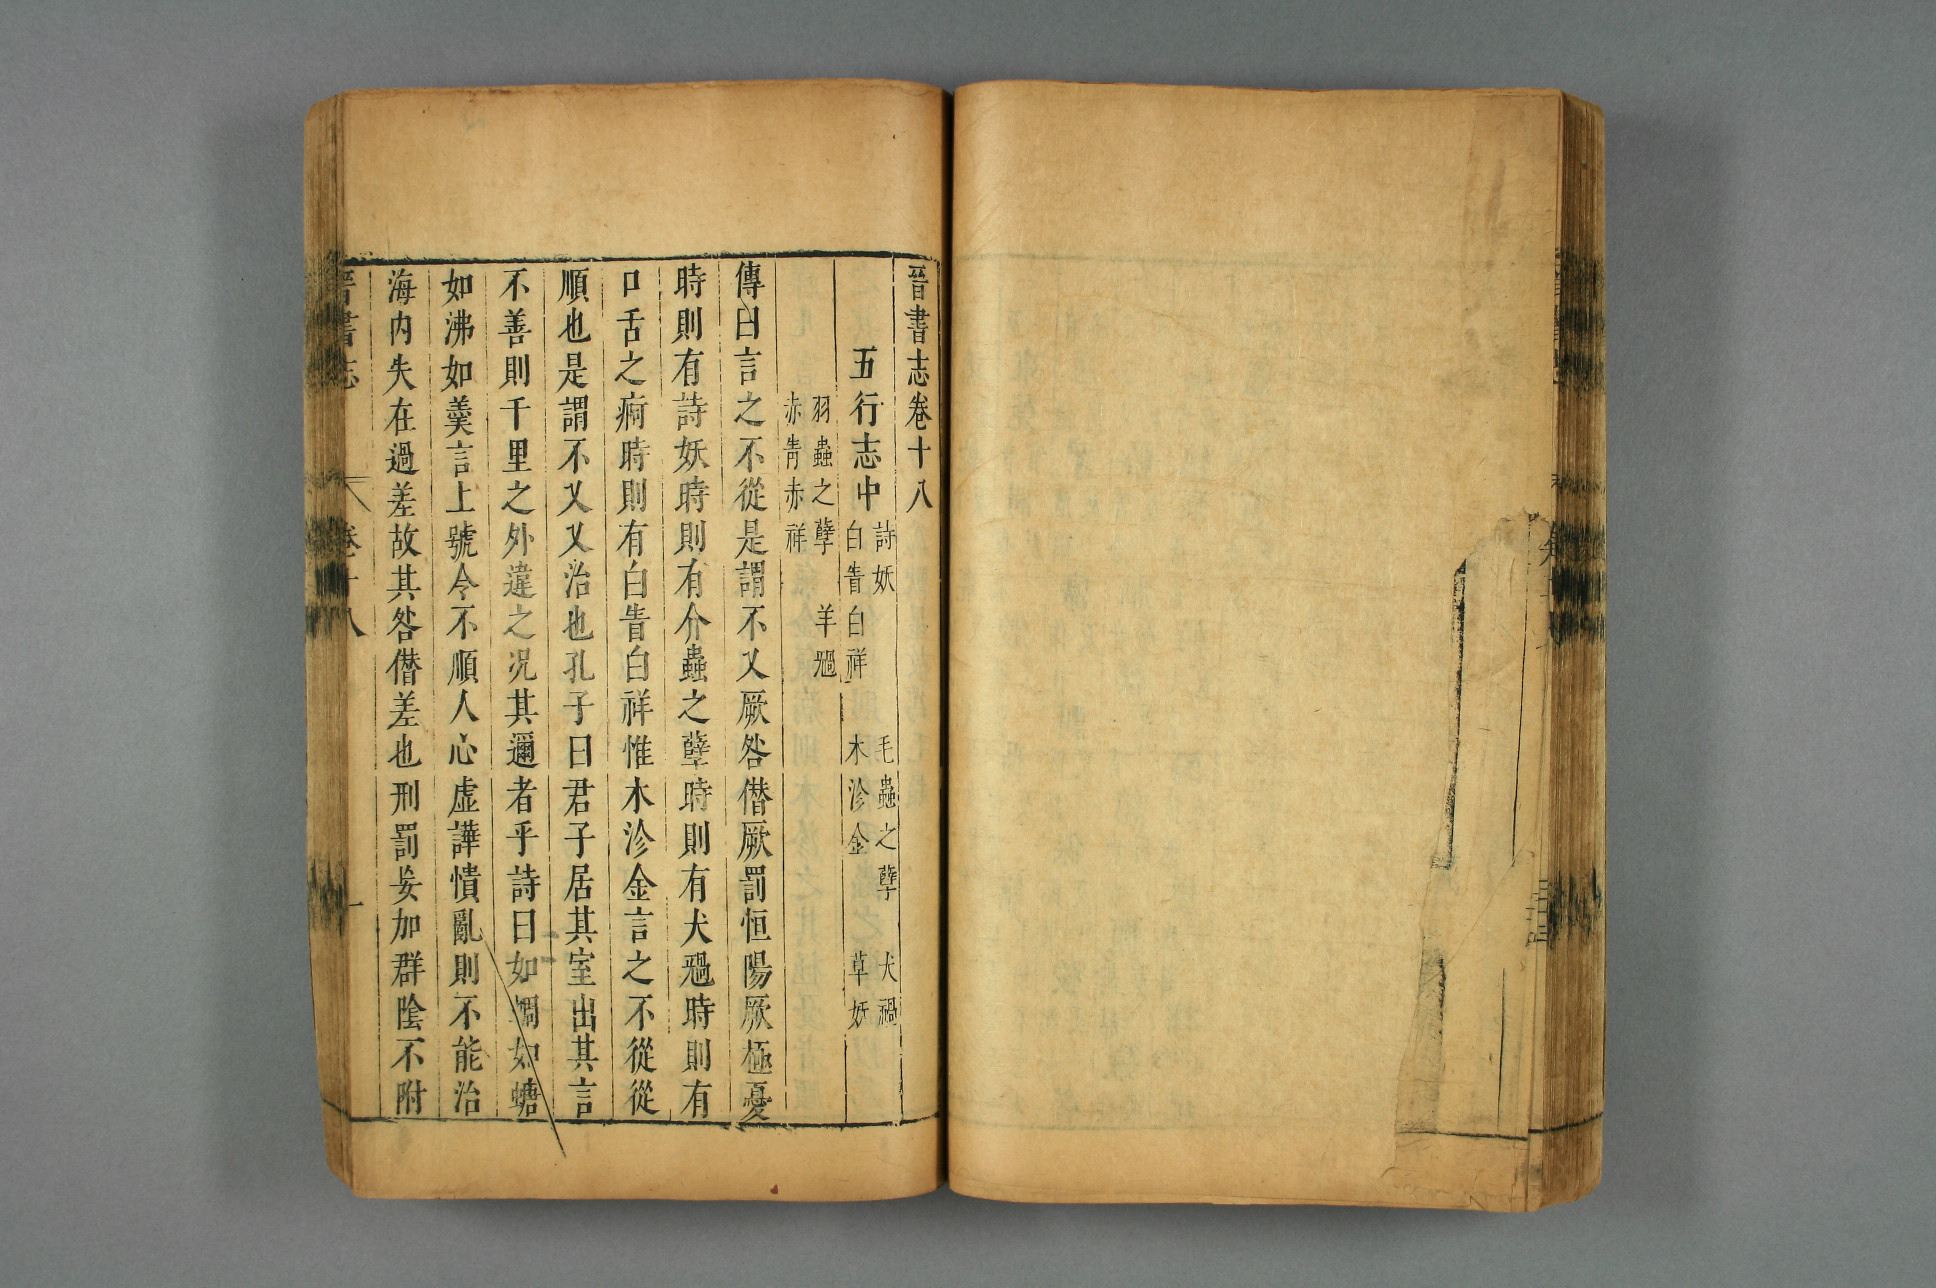 晉書志卷十八
五行志中
詩妖 毛蟲之孽 犬禍
白眚白祥 木沴金 草妖
羽蟲之孽 羊禍
赤眚赤祥
傳曰言之不從是謂不乂厥咎僭厥罰恒陽厥極憂
時則有詩妖時則有介蟲之孽時則有犬禍時則有
口舌之痾時則有白眚白祥惟木沴金言之不從從
順也是謂不乂乂治也孔子曰君子居其室出其言
不善則千里之外違之况其邇者乎詩曰如蜩如螗
如沸如羹言上號令不順人心虛譁憒亂則不能治
海內失在過差故其咎僭差也刑罰妄加群陰不附
晉書志 卷十八 一